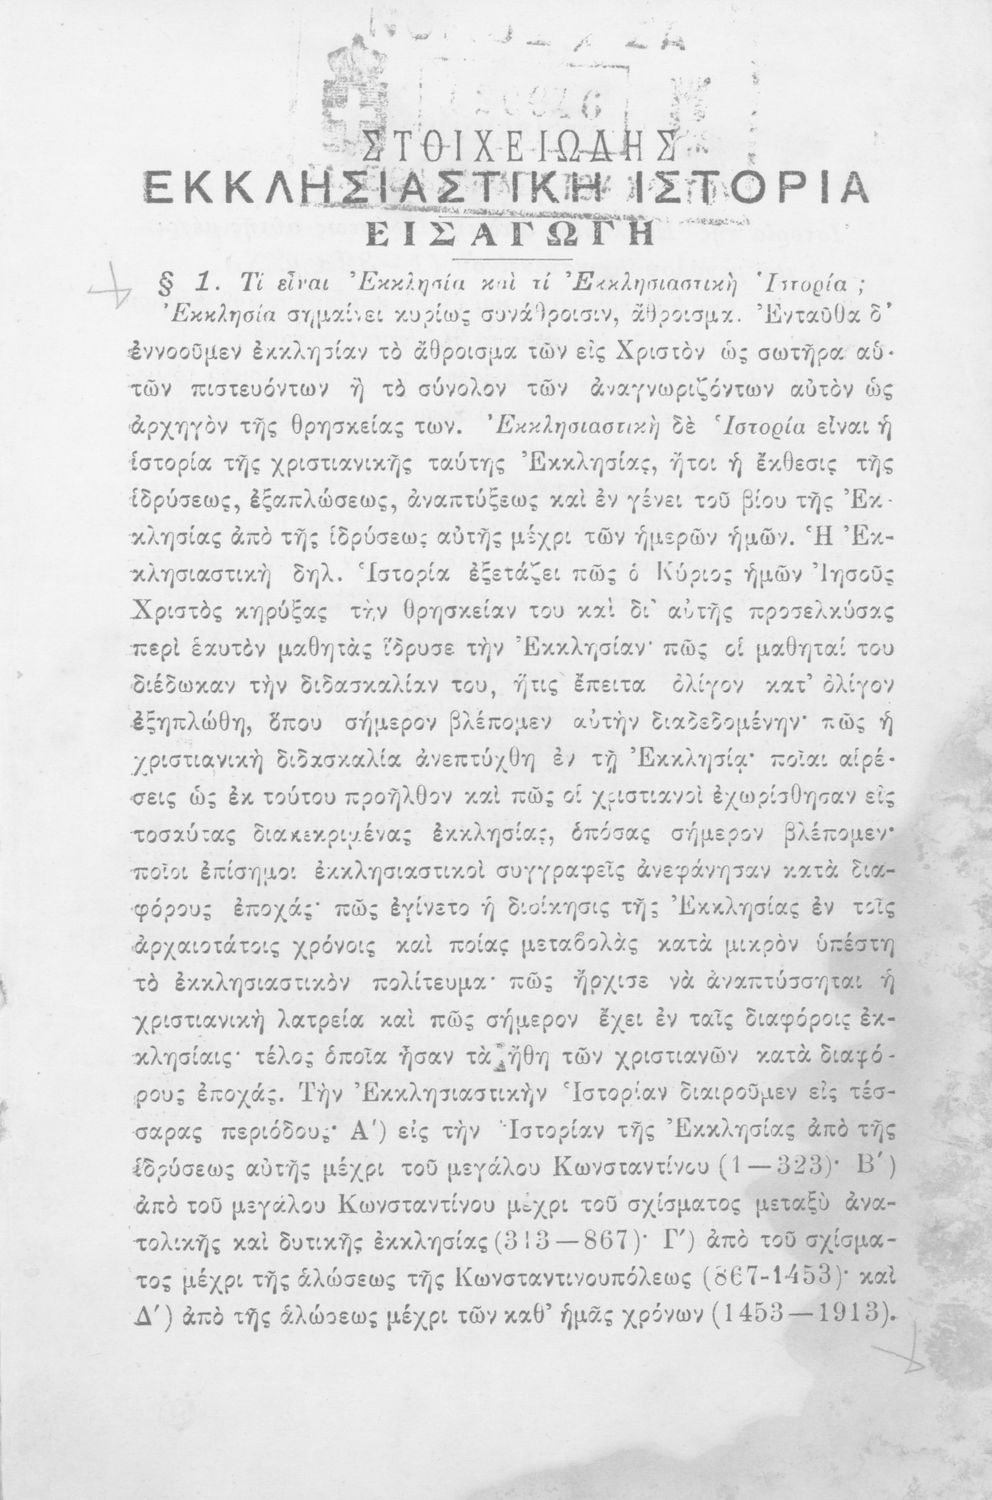 ΣΤΟΙΧΕΙΩΔΗΣ
ΕΚΚΛΗΣΙΑΣΤΙΚΗ ΙΣΤΟΡΙΑ
ΕΙΣΑΓΩΓΗ
§ 1. Τί εἶναι Ἐκκλησία καὶ τί Ἐκκλησιαστικὴ Ἱστορία ;
Ἐκκλησία σημαίνει κυρίως συνάθροισιν, ἄθροισμα. Ἐνταῦθα δ’
ἐννοοῦμεν ἐκκλησίαν τὸ ἄθροισμα τῶν εἰς Χριστὸν ὡς σωτῆρα αὐ-
τῶν πιστευόντων ἢ τὸ σύνολον τῶν ἀναγνωριζόντων αὐτὸν ὡς
ἀρχηγὸν τῆς θρησκείας των. Ἐκκλησιαστικὴ δὲ Ἱστορία εἶναι ἡ
ἱστορία τῆς χριστιανικῆς ταύτης Ἐκκλησίας, ἤτοι ἡ ἔκθεσις τῆς
ἱδρύσεως, ἐξαπλώσεως, ἀναπτύξεως καὶ ἐν γένει τοῦ βίου τῆς Ἐκ-
κλησίας ἀπὸ τῆς ἱδρύσεως αὐτῆς μέχρι τῶν ἡμερῶν ἡμῶν. Ἡ Ἐκ-
κλησιαστικὴ δηλ. Ἱστορία ἐξετάζει πῶς ὁ Κύριος ἡμῶν Ἰησοῦς
Χριστὸς κηρύξας τὴν θρησκείαν του καὶ δι’ αὐτῆς προσελκύσας
περὶ ἑαυτὸν μαθητὰς ἵδρυσε τὴν Ἐκκλησίαν· πῶς οἱ μαθηταί του
διέδωκαν τὴν διδασκαλίαν του, ἥτις ἔπειτα ὀλίγον κατ’ ὀλίγον
ἐξηπλώθη, ὅπου σήμερον βλέπομεν αὐτὴν διαδεδομένην· πῶς ἡ
χριστιανικὴ διδασκαλία ἀνεπτύχθη ἐν τῇ Ἐκκλησίᾳ· ποῖαι αἱρέ-
σεις ὡς ἐκ τούτου προῆλθον καὶ πῶς οἱ χριστιανοὶ ἐχωρίσθησαν εἰς
τοσαύτας διακεκριμένας ἐκκλησίας, ὁπόσας σήμερον βλέπομεν·
ποῖοι ἐπίσημοι ἐκκλησιαστικοὶ συγγραφεῖς ἀνεφάνησαν κατὰ δια-
φόρους ἐποχάς· πῶς ἐγίνετο ἡ διοίκησις τῆς Ἐκκλησίας ἐν τοῖς
ἀρχαιοτάτοις χρόνοις καὶ ποίας μεταβολὰς κατὰ μικρὸν ὑπέστη
τὸ ἐκκλησιαστικὸν πολίτευμα· πῶς ἤρχισε νὰ ἀναπτύσσηται ἡ
χριστιανικὴ λατρεία καὶ πῶς σήμερον ἔχει ἐν ταῖς διαφόροις ἐκ-
κλησίαις· τέλος ὁποῖα ἦσαν τὰ ἤθη τῶν χριστιανῶν κατὰ διαφό-
ρους ἐποχάς. Τὴν Ἐκκλησιαστικὴν Ἱστορίαν διαιροῦμεν εἰς τέσ-
σαρας περιόδους· Α′) εἰς τὴν Ἱστορίαν τῆς Ἐκκλησίας ἀπὸ τῆς
ἱδρύσεως αὐτῆς μέχρι τοῦ μεγάλου Κωνσταντίνου (1—323)· Β′)
ἀπὸ τοῦ μεγάλου Κωνσταντίνου μέχρι τοῦ σχίσματος μεταξὺ ἀνα-
τολικῆς καὶ δυτικῆς ἐκκλησίας (313—867)· Γ′) ἀπὸ τοῦ σχίσμα-
τος μέχρι τῆς ἁλώσεως τῆς Κωνσταντινουπόλεως (867-1453)· καὶ
Δ′) ἀπὸ τῆς ἁλώσεως μέχρι τῶν καθ’ ἡμᾶς χρόνων (1453—1913).